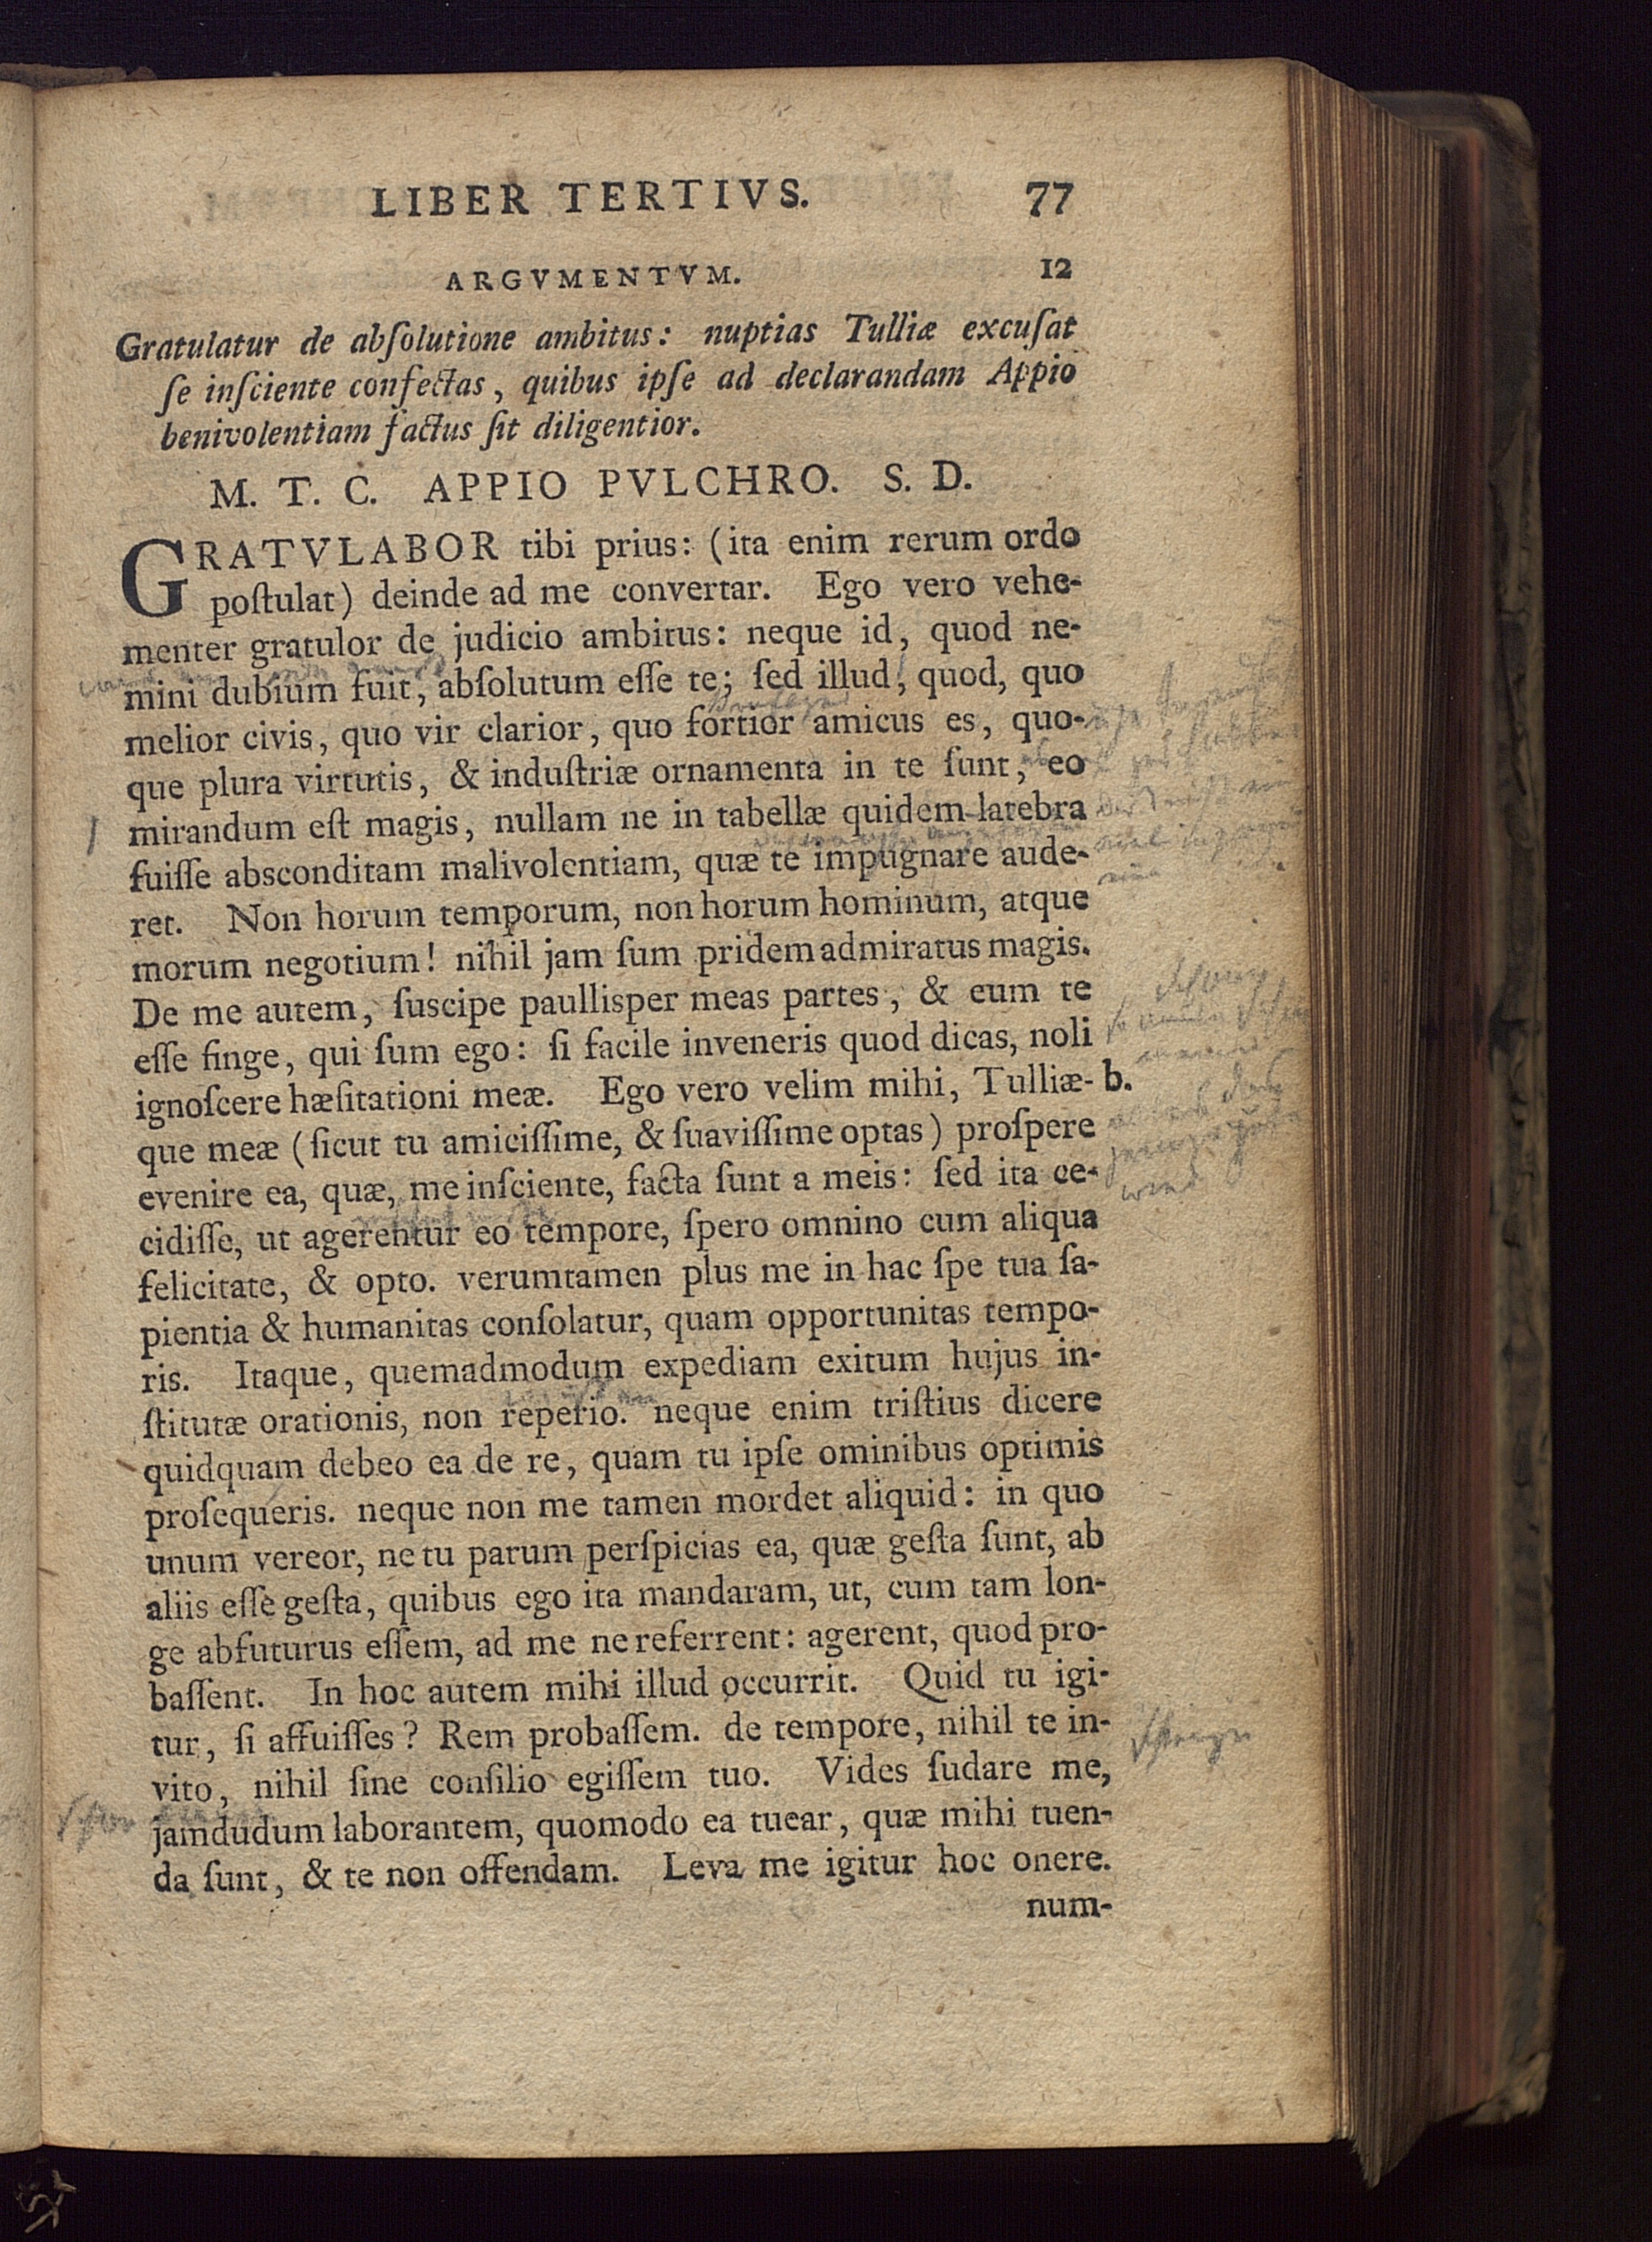 LIBER TERTIVS. 77
ARGVMENTVM. 12
Gratulatur de abſolutione ambitus: nuptias Tulliæ excuſat
ſe inſciente confectas, quibus ipſe ad declarandam Appio
benivolentiam factus ſit diligentior.
M. T. C. APPIO PVLCHRO. S. D.
GRATVLABOR tibi prius: (ita enim rerum ordo
poſtulat) deinde ad me convertar. Ego vero vehe-
menter gratulor de judicio ambitus: neque id, quod ne-
mini dubium fuit, abſolutum eſſe te; ſed illud, quod, quo
melior civis, quo vir clarior, quo fortior amicus es, quo-
que plura virtutis, & induſtriæ ornamenta in te ſunt, eo
mirandum eſt magis, nullam ne in tabellæ quidem latebra
fuiſſe absconditam malivolentiam, quæ te impugnare aude-
ret. Non horum temporum, non horum hominum, atque
morum negotium! nihil jam ſum pridem admiratus magis.
De me autem, ſuscipe paullisper meas partes, & eum te
eſſe finge, qui ſum ego: ſi facile inveneris quod dicas, noli
ignoſcere hæſitationi meæ. Ego vero velim mihi, Tulliæ- b.
que meæ (ſicut tu amiciſſime, & ſuaviſſime optas) proſpere
evenire ea, quæ, me inſciente, facta ſunt a meis: ſed ita ce-
cidiſſe, ut agerentur eo tempore, ſpero omnino cum aliqua
felicitate, & opto. verumtamen plus me in hac ſpe tua ſa-
pientia & humanitas conſolatur, quam opportunitas tempo-
ris. Itaque, quemadmodum expediam exitum hujus in-
ſtitutæ orationis, non reperio. neque enim triſtius dicere
quidquam debeo ea de re, quam tu ipſe ominibus optimis
proſequeris. neque non me tamen mordet aliquid: in quo
unum vereor, ne tu parum perſpicias ea, quæ geſta ſunt, ab
aliis eſſe geſta, quibus ego ita mandaram, ut, cum tam lon-
ge abfuturus eſſem, ad me ne referrent: agerent, quod pro-
baſſent. In hoc autem mihi illud occurrit. Quid tu igi-
tur, ſi affuiſſes? Rem probaſſem. de tempore, nihil te in-
vito, nihil ſine conſilio egiſſem tuo. Vides ſudare me,
jamdudum laborantem, quomodo ea tuear, quæ mihi tuen-
da ſunt, & te non offendam. Leva me igitur hoc onere.
num-